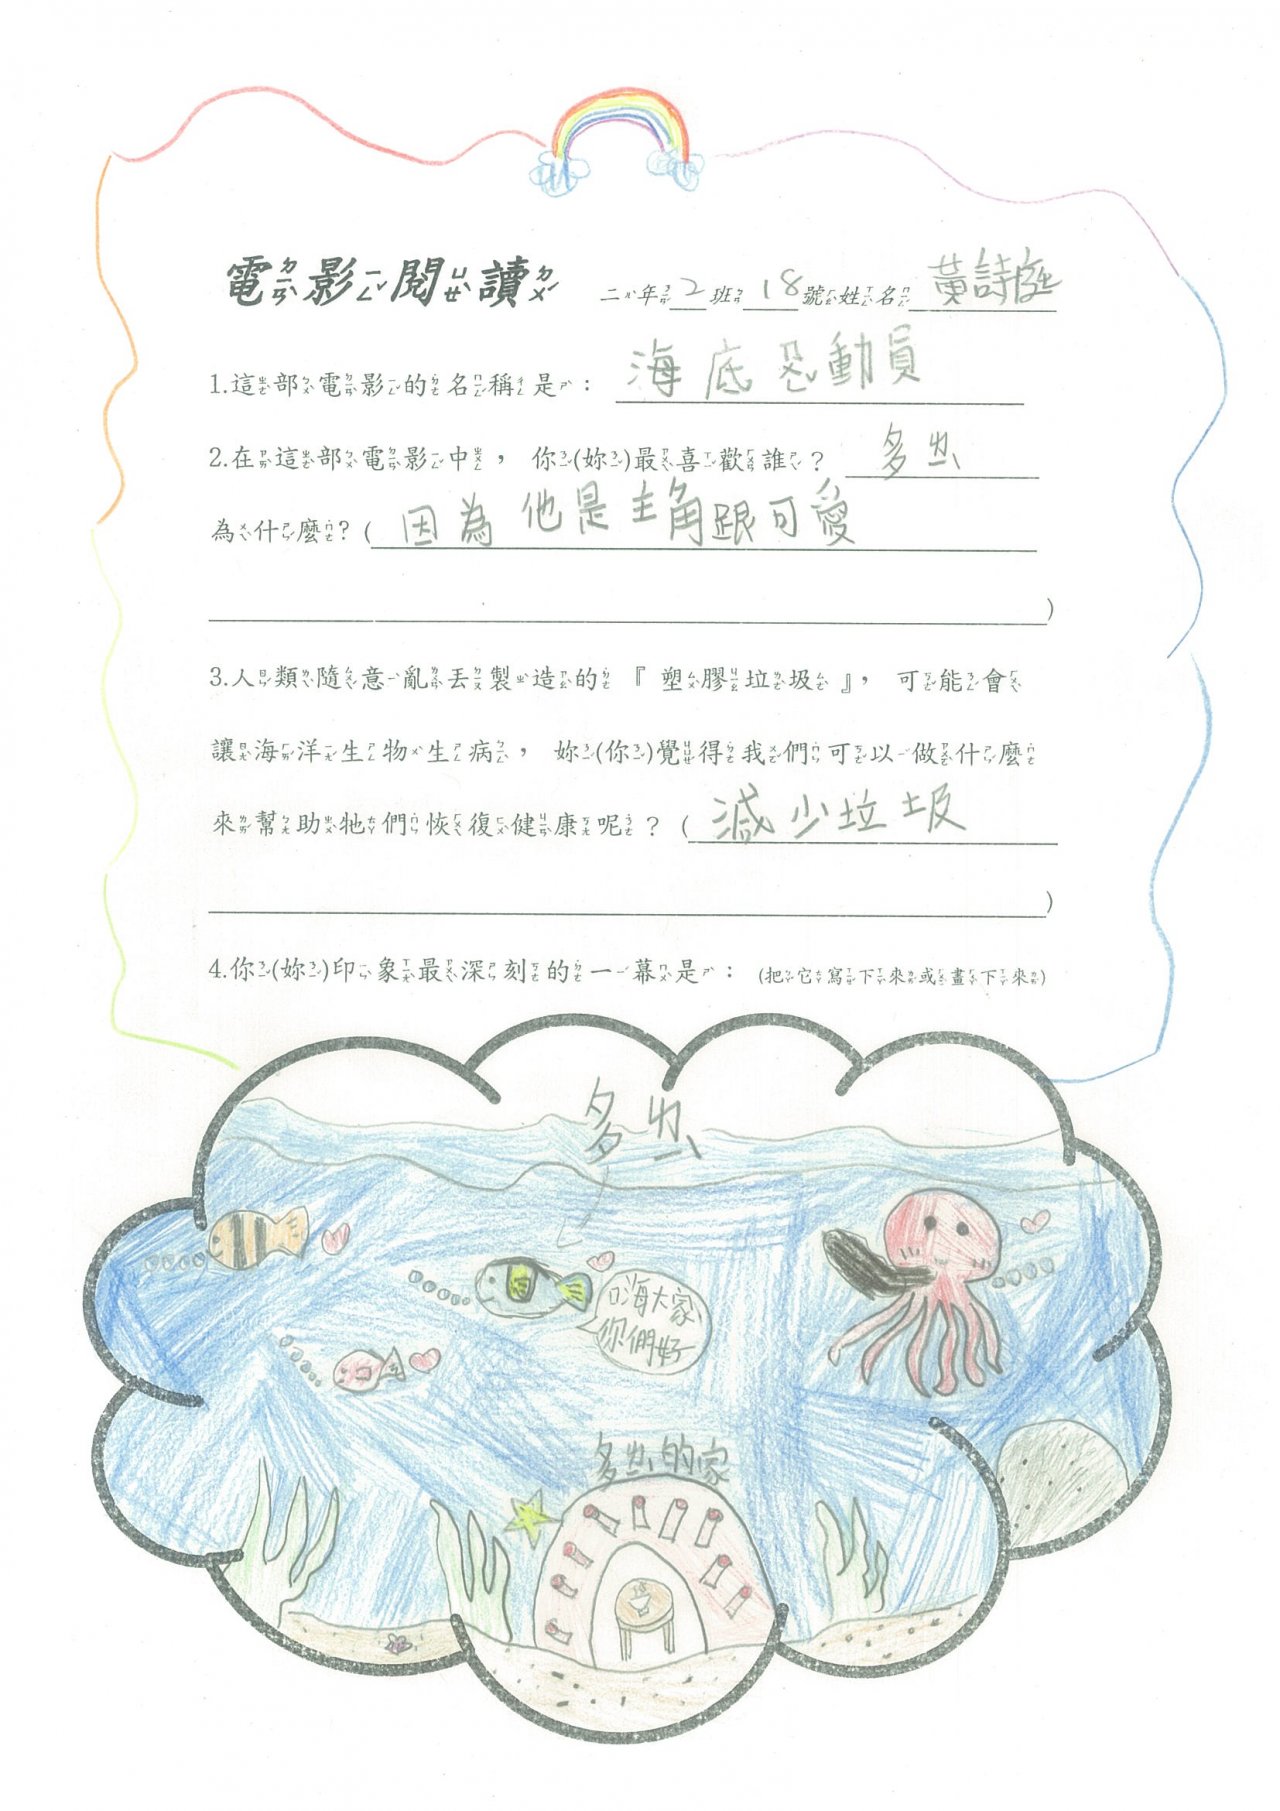 電影閱讀 二年2班18號姓名黃詩庭
1.這部電影的名稱是：海底ㄗㄨㄥˇ動員
2.在這部電影中，你(妳)最喜歡誰？多ㄌㄧˋ
為什麼?(因為他是主角跟可愛
)
3.人類隨意亂丟製造的『塑膠垃圾』，可能會
讓海洋生物生病，妳(你)覺得我們可以做什麼
來幫助牠們恢復健康呢？(減少垃圾
)
4.你(妳)印象最深刻的一幕是：(把它寫下來或畫下來)
多ㄌㄧˋ
嗨大家
你們好
多ㄌㄧˋ的家